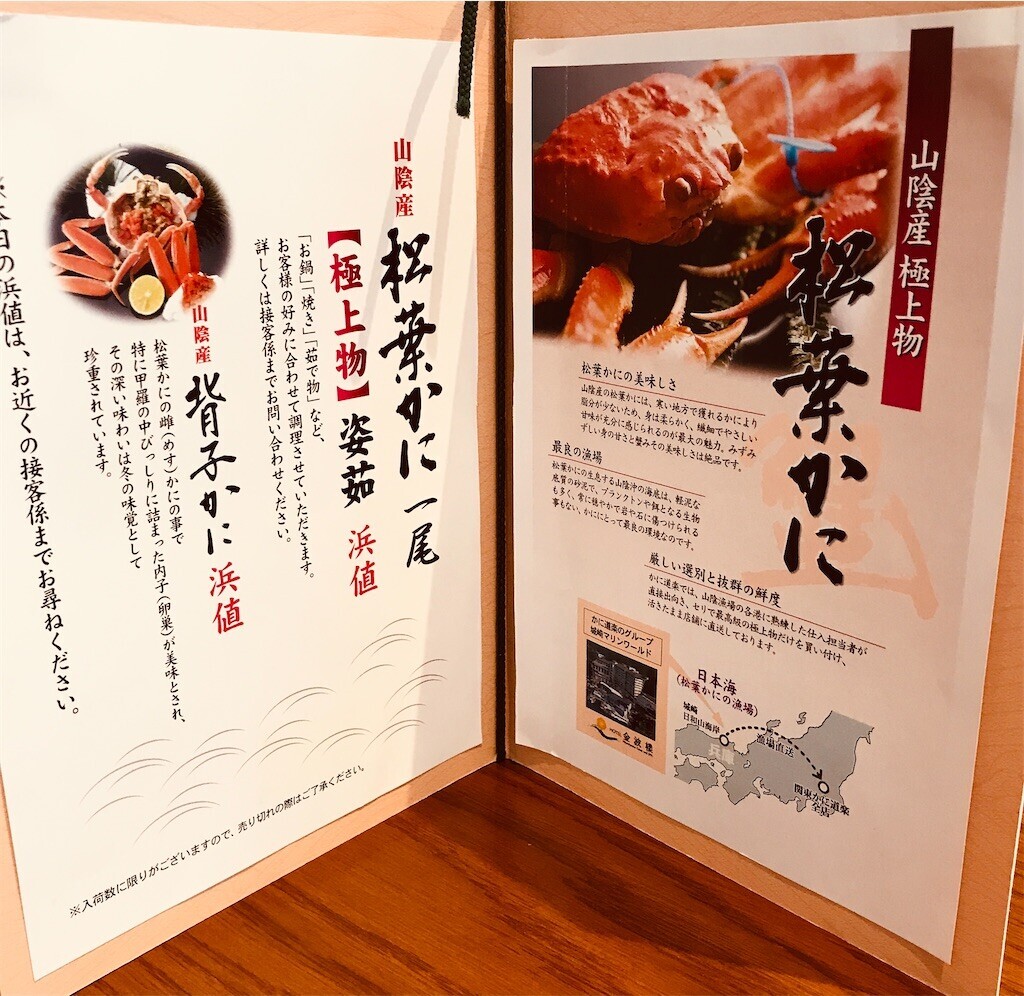 山陰産 極上物
松葉かに
松葉かにの美味しさ
山陰産の松葉かには、寒い地方で獲れるかにより
脂分が少ないため、身は柔らかく、繊細でやさしい
甘味が充分に感じられるのが最大の魅力。みずみ
ずしい身の甘さと蟹みその美味しさは絶品です。
最良の漁場
松葉かにの生息する山陰沖の海底は、軽泥な
底質の砂泥で、プランクトンや餌となる生物
も多く、常に穏やかで岩や石に傷つけられる
事もない、かににとって最良の環境なのです。
厳しい選別と抜群の鮮度
かに道楽では、山陰漁場の各港に熟練した仕入担当者が
直接出向き、セリで最高級の極上物だけを買い付け、
活きたまま店舗に直送しております。
かに道楽のグループ
城崎マリンワールド
HOTEL 金波楼
日本海
(松葉かにの漁場)
城崎
日和山海岸
兵庫
漁場直送
関東かに道楽
全店
山陰産
松葉かに 一尾
【極上物】姿茹 浜値
「お鍋」「焼き」「茹で物」など、
お客様の好みに合わせて調理させていただきます。
詳しくは接客係までお問い合わせください。
山陰産
背子かに 浜値
松葉かにの雌(めす)かにの事で
特に甲羅の中びっしりに詰まった内子(卵巣)が美味とされ、
その深い味わいは冬の味覚として
珍重されています。
※本日の浜値は、お近くの接客係までお尋ねください。
※入荷数に限りがございますので、売り切れの際はご了承ください。